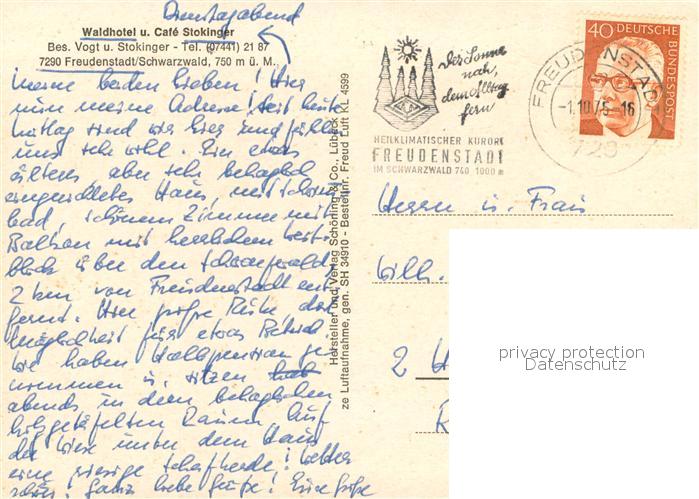 Dienstagabend
Waldhotel u. Café Stokinger
Bes. Vogt u. Stokinger - Tel. (07441) 21 87
7290 Freudenstadt/Schwarzwald, 750 m ü. M.
Meine beiden Lieben! Hier
nun meine Adresse! Seit heute
mittag sind wir hier und fühlen
uns sehr wohl. Ein etwas
älteres aber sehr behaglich
eingerichtetes Haus, mit
bad, schönem Zimmer mit
Balkon mit herrlichem Weit-
blick über den Schwarzwald,
2 km von Freudenstadt ent-
fernt. Hier große Ruhe
Möglichkeit für etwas
wir haben Vollpension ge-
nommen u. sitzen
abends in dem behaglichen
holzgetäfelten Raum. Auf
der Wiese unter dem Haus
eine riesige Schafherde! Wetter
schön! Ganz liebe Grüße! Eure
Hersteller und Verlag Schöning & Co., Lübeck
ze Luftaufnahme, gen. SH 34910 - Bestellnr. Freud Luft KL 4599
Der Sonne
nah,
dem Alltag
fern
HEILKLIMATISCHER KURORT
FREUDENSTADT
IM SCHWARZWALD 740 1000 m
FREUDENSTADT
-1.10.75-16
729
40 DEUTSCHE
BUNDESPOST
Herrn u. Frau
Wilh.
2 H
R
privacy protection
Datenschutz